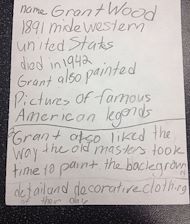 name Grant Wood
1891 midewestern
united States
died in 1942
Grant also painted
Pictures of famous
American legends
Grant also liked the
way the old masters took
time to paint the backgroun
detail and decorative clothing
of their day